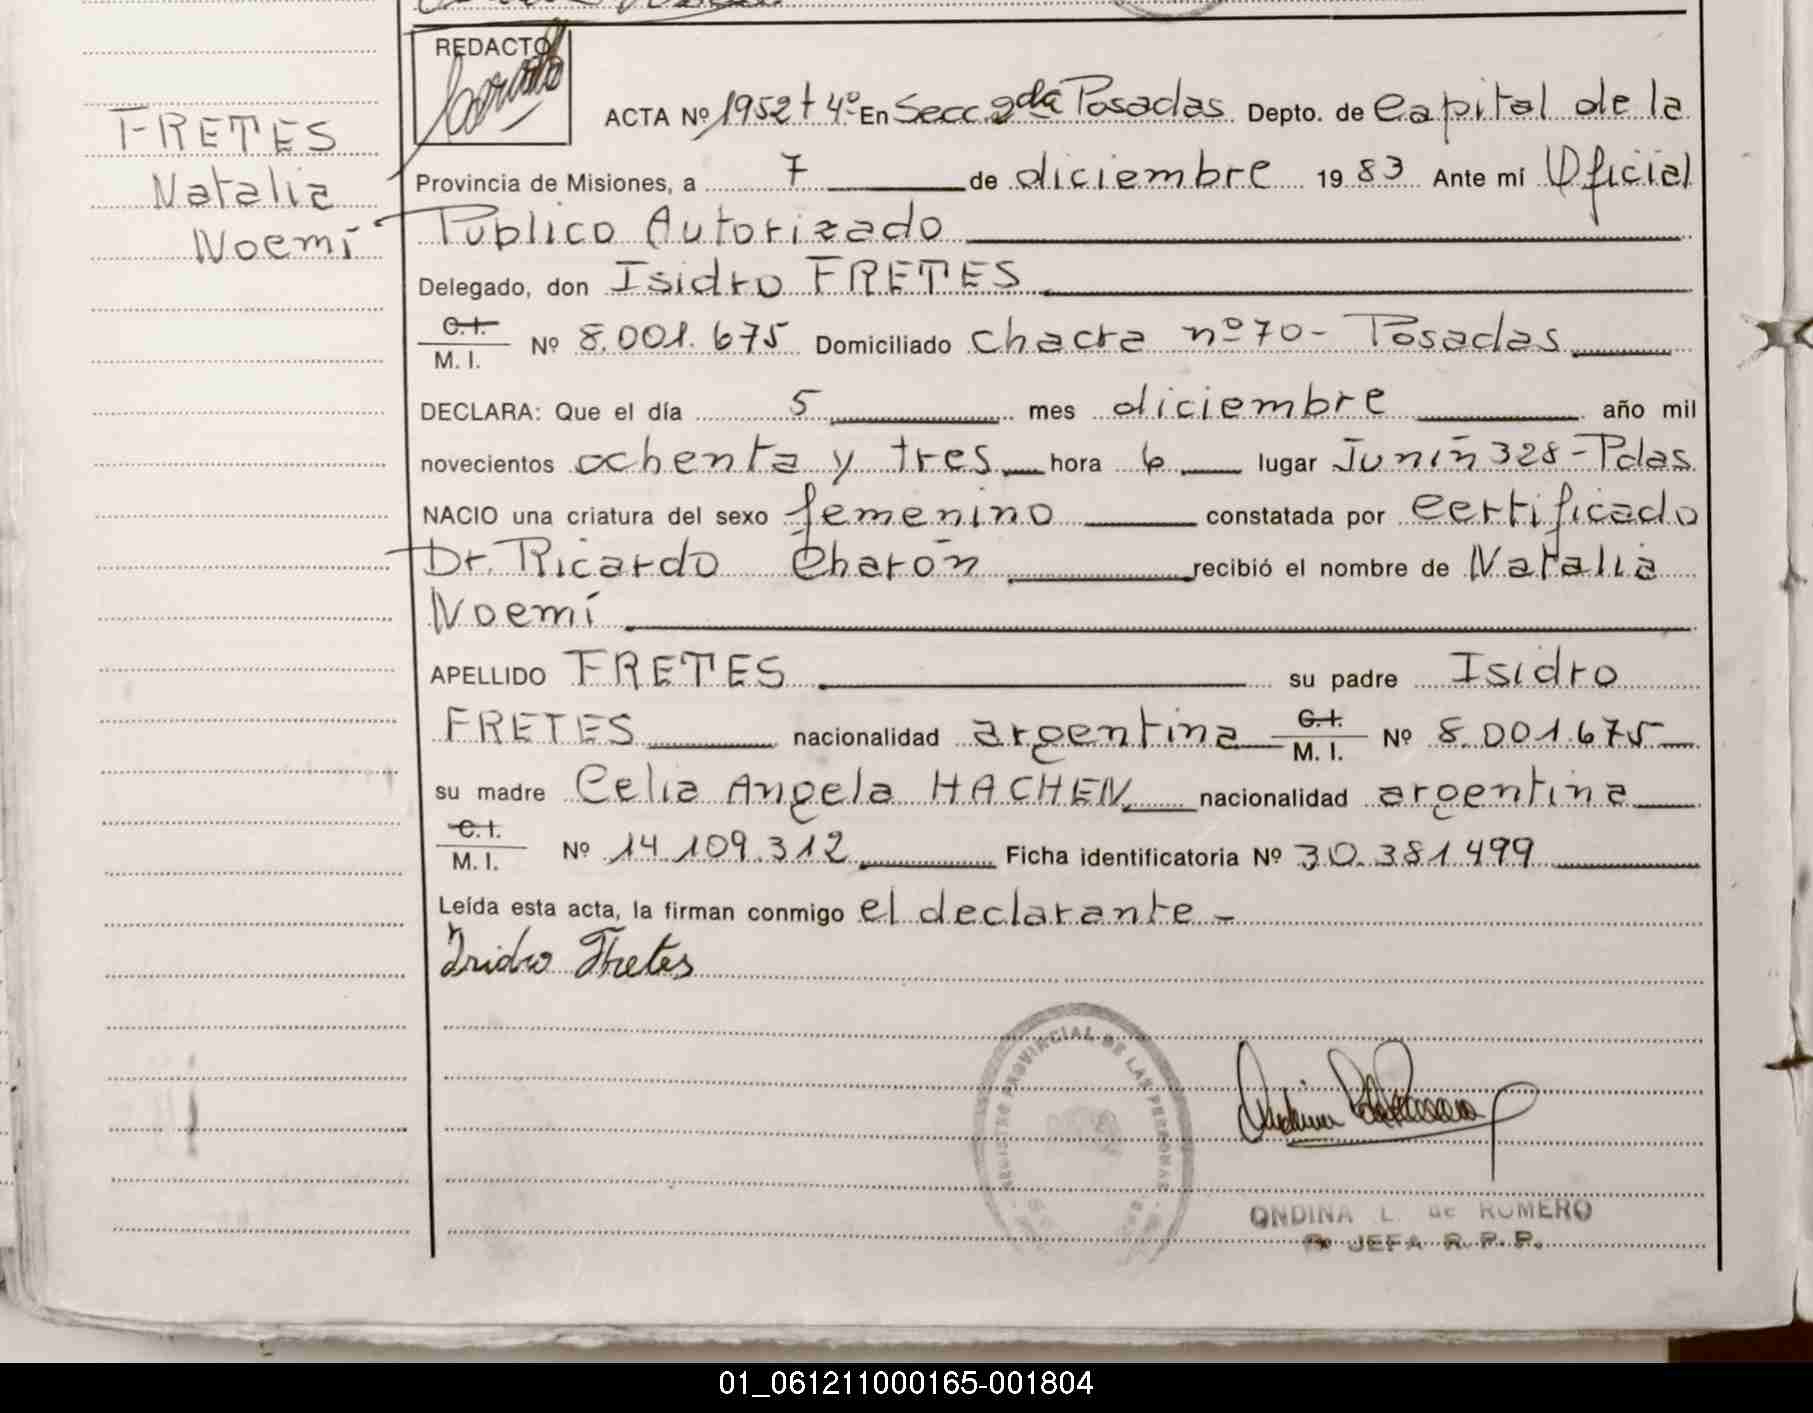 REDACTO
FRETES
Natalia
Noemí
ACTA Nº 1952 t 4º En Secc 2da Posadas Depto. de Capital de la
Provincia de Misiones, a 7 de diciembre 1983 Ante mí Oficial
Público Autorizado
Delegado, don Isidro FRETES
C.I.
M. I. Nº 8.001.675 Domiciliado chacra nº 70 - Posadas
DECLARA: Que el día 5 mes diciembre año mil
novecientos ochenta y tres hora 6 lugar Junín 328 - Pdas
NACIO una criatura del sexo femenino constatada por certificado
Dr. Ricardo Charón recibió el nombre de Natalia
Noemí
APELLIDO FRETES su padre Isidro
FRETES nacionalidad argentina C.I. M. I. Nº 8.001.675
su madre Celia Angela HACHEN nacionalidad argentina
C.I.
M. I. Nº 14.109.312 Ficha identificatoria Nº 30.381.499
Leída esta acta, la firman conmigo el declarante -
Isidro Fretes
REGISTRO PROVINCIAL DE LAS PERSONAS
ONDINA L. de ROMERO
JEFA R. P. P.
01_061211000165-001804